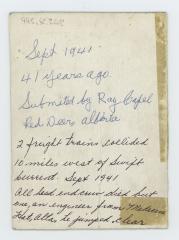 Sept 1941
41 years ago.
Submitted by Ray Capel
Red Deer, alberta
2 freight trains collided
10 miles west of Swift
Current. Sept 1941
All head end crew died but
one, an engineer from Medicine
Hat, Alta. he jumped clear